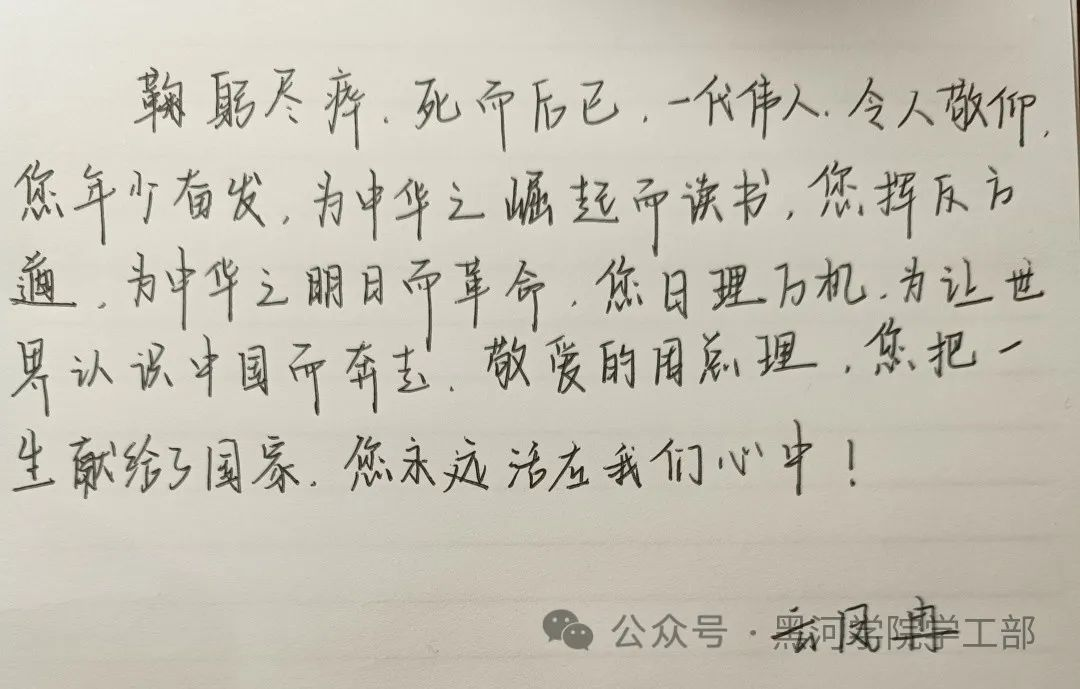 鞠躬尽瘁.死而后已,一代伟人.令人敬仰,
您年少奋发,为中华之崛起而读书,您挥斥方
遒,为中华之明日而革命.您日理万机.为让世
界认识中国而奔走.敬爱的周总理,您把一
生献给了国家.您永远活在我们心中!
公众号·黑河学院学工部